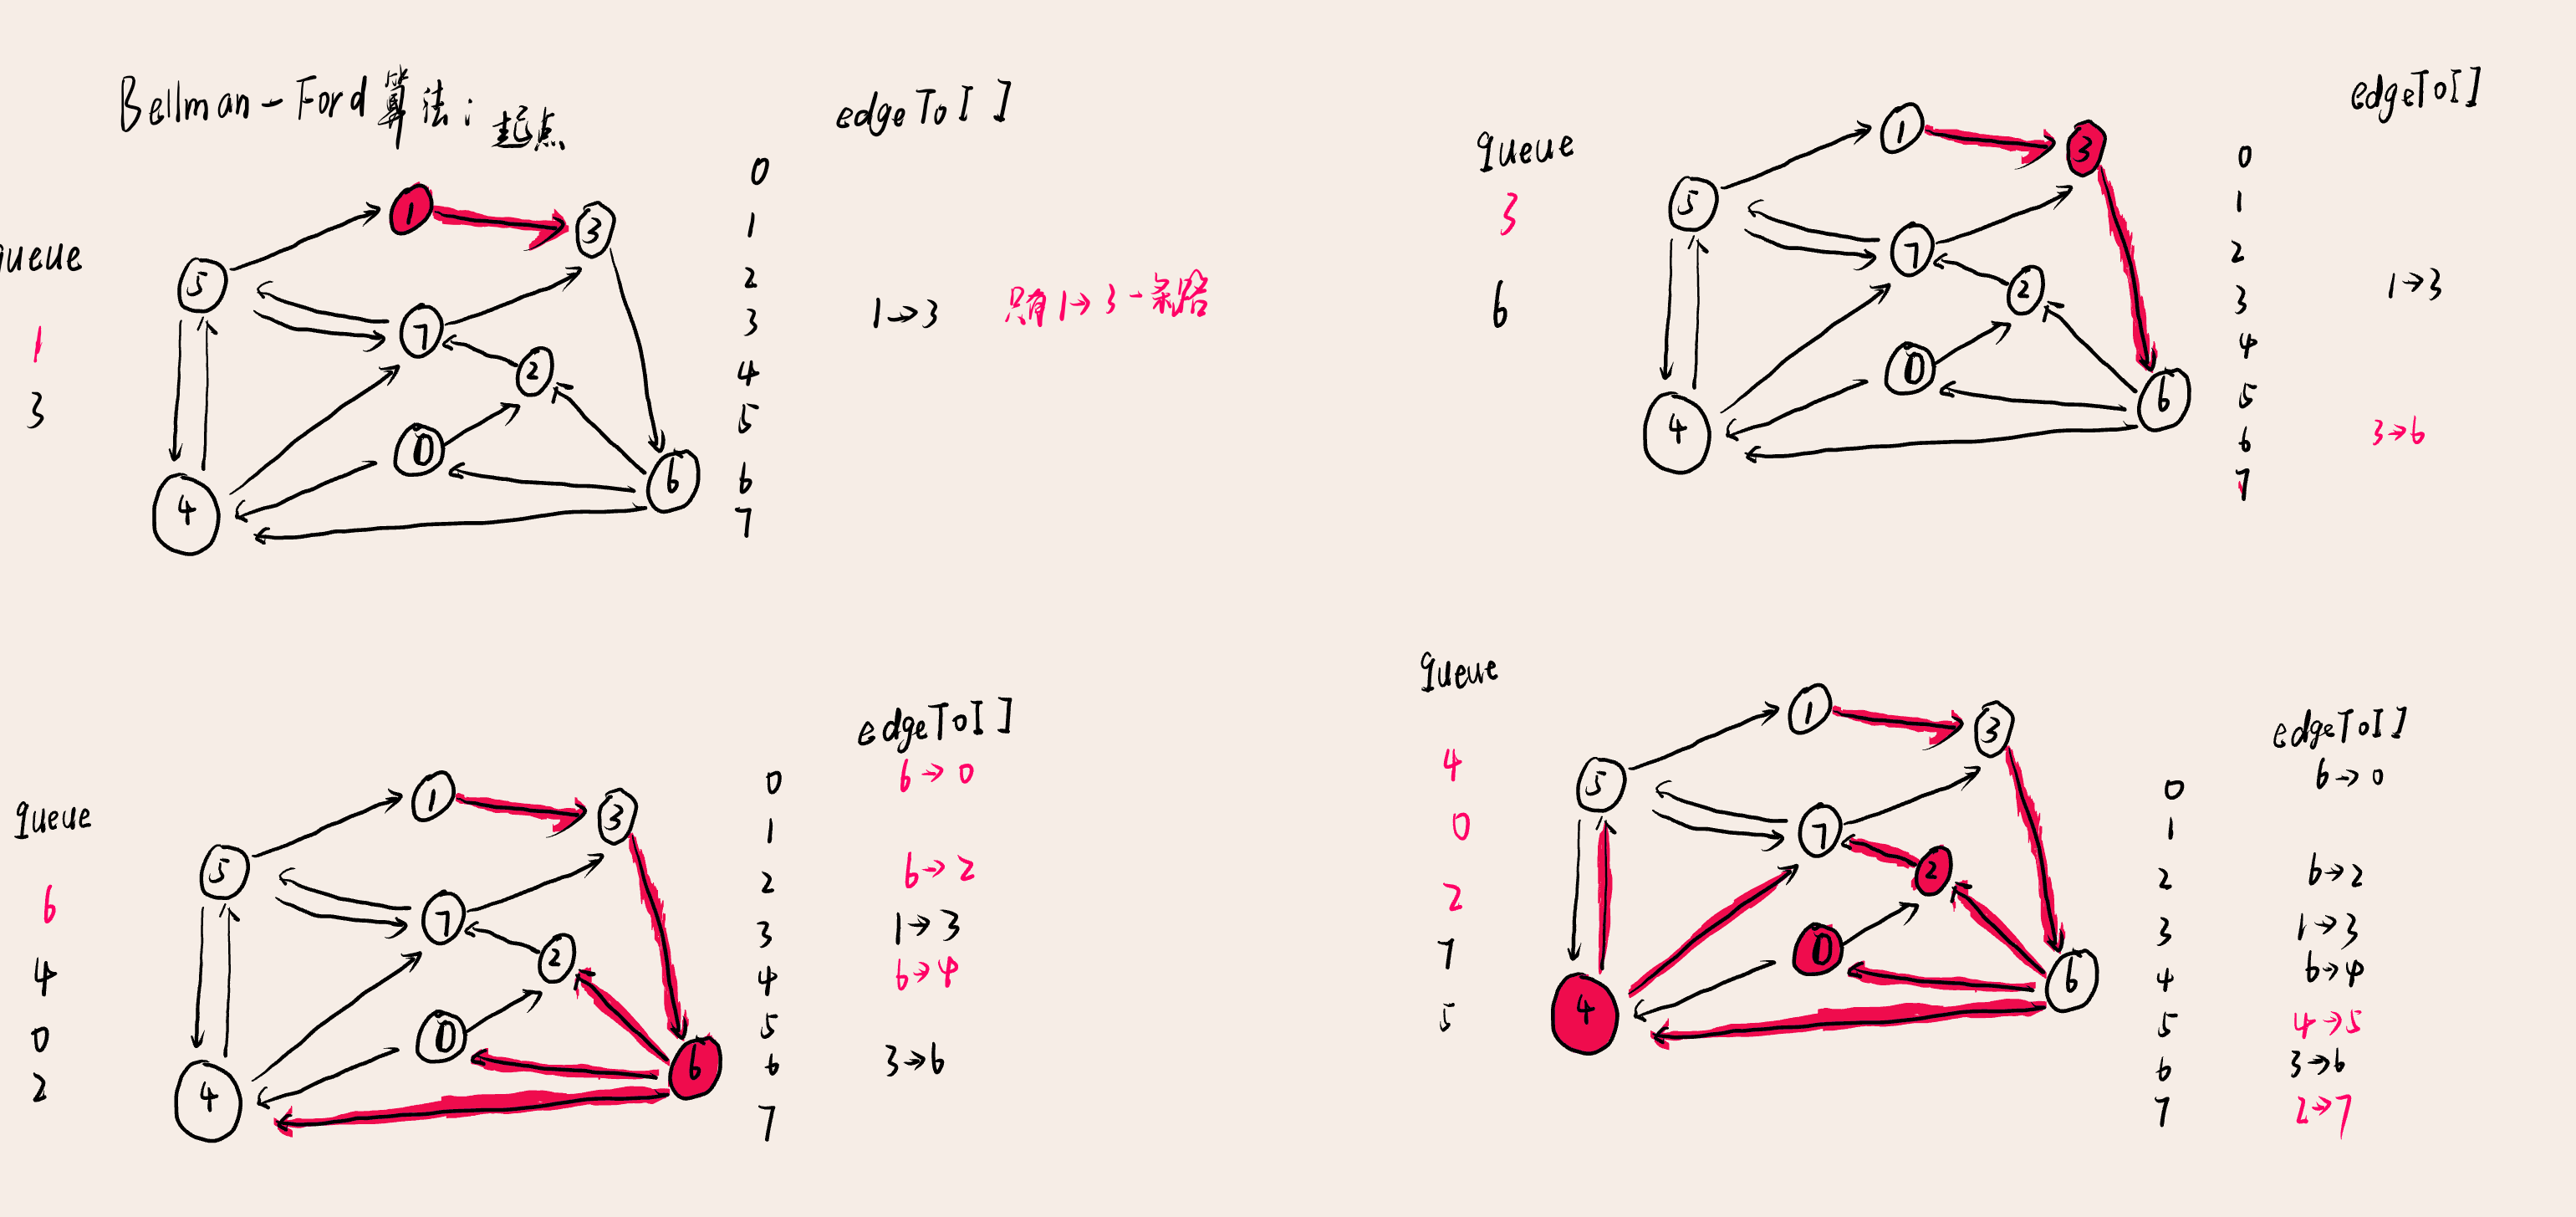 Bellman-Ford算法: 起点
edgeTo[]
queue
1
3
1
3
5
7
2
0
4
6
0
1
2
3 1→3 只有1→3一条路
4
5
6
7
queue
3
6
1
3
5
7
2
0
4
6
edgeTo[]
0
1
2
3 1→3
4
5
6 3→6
7
queue
6
4
0
2
1
3
5
7
2
0
4
6
edgeTo[]
0 6→0
1
2 6→2
3 1→3
4 6→4
5
6 3→6
7
queue
4
0
2
7
5
1
3
5
7
2
0
4
6
edgeTo[]
0 6→0
1
2 6→2
3 1→3
4 6→4
5 4→5
6 3→6
7 2→7